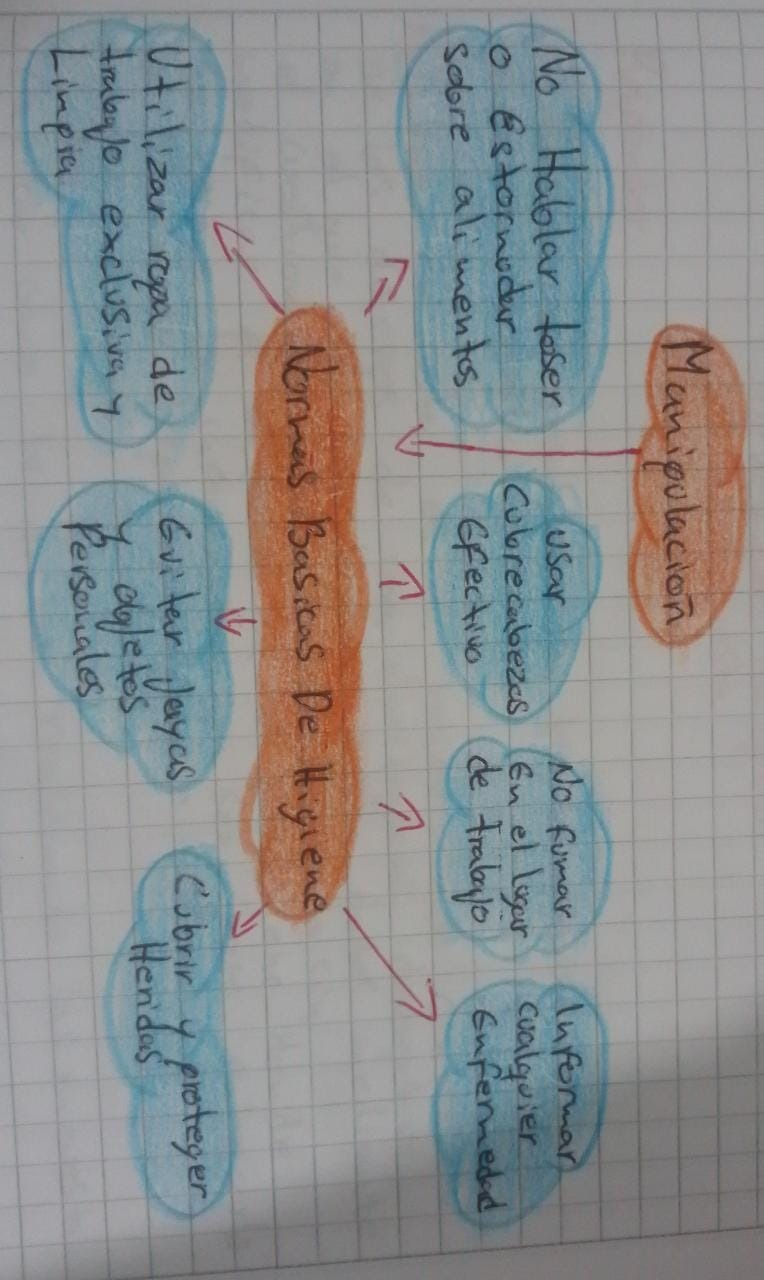 Manipulación
No Hablar toser
o Estornudar
sobre alimentos
usar
Cubrecabezas
Efectivo
No fumar
En el lugar
de trabajo
Informar
cualquier
Enfermedad
Normas Basicas De Higiene
Utilizar ropa de
trabajo exclusiva y
Limpia
Evitar Jayas
y objetos
Personales
Cubrir y proteger
Heridas